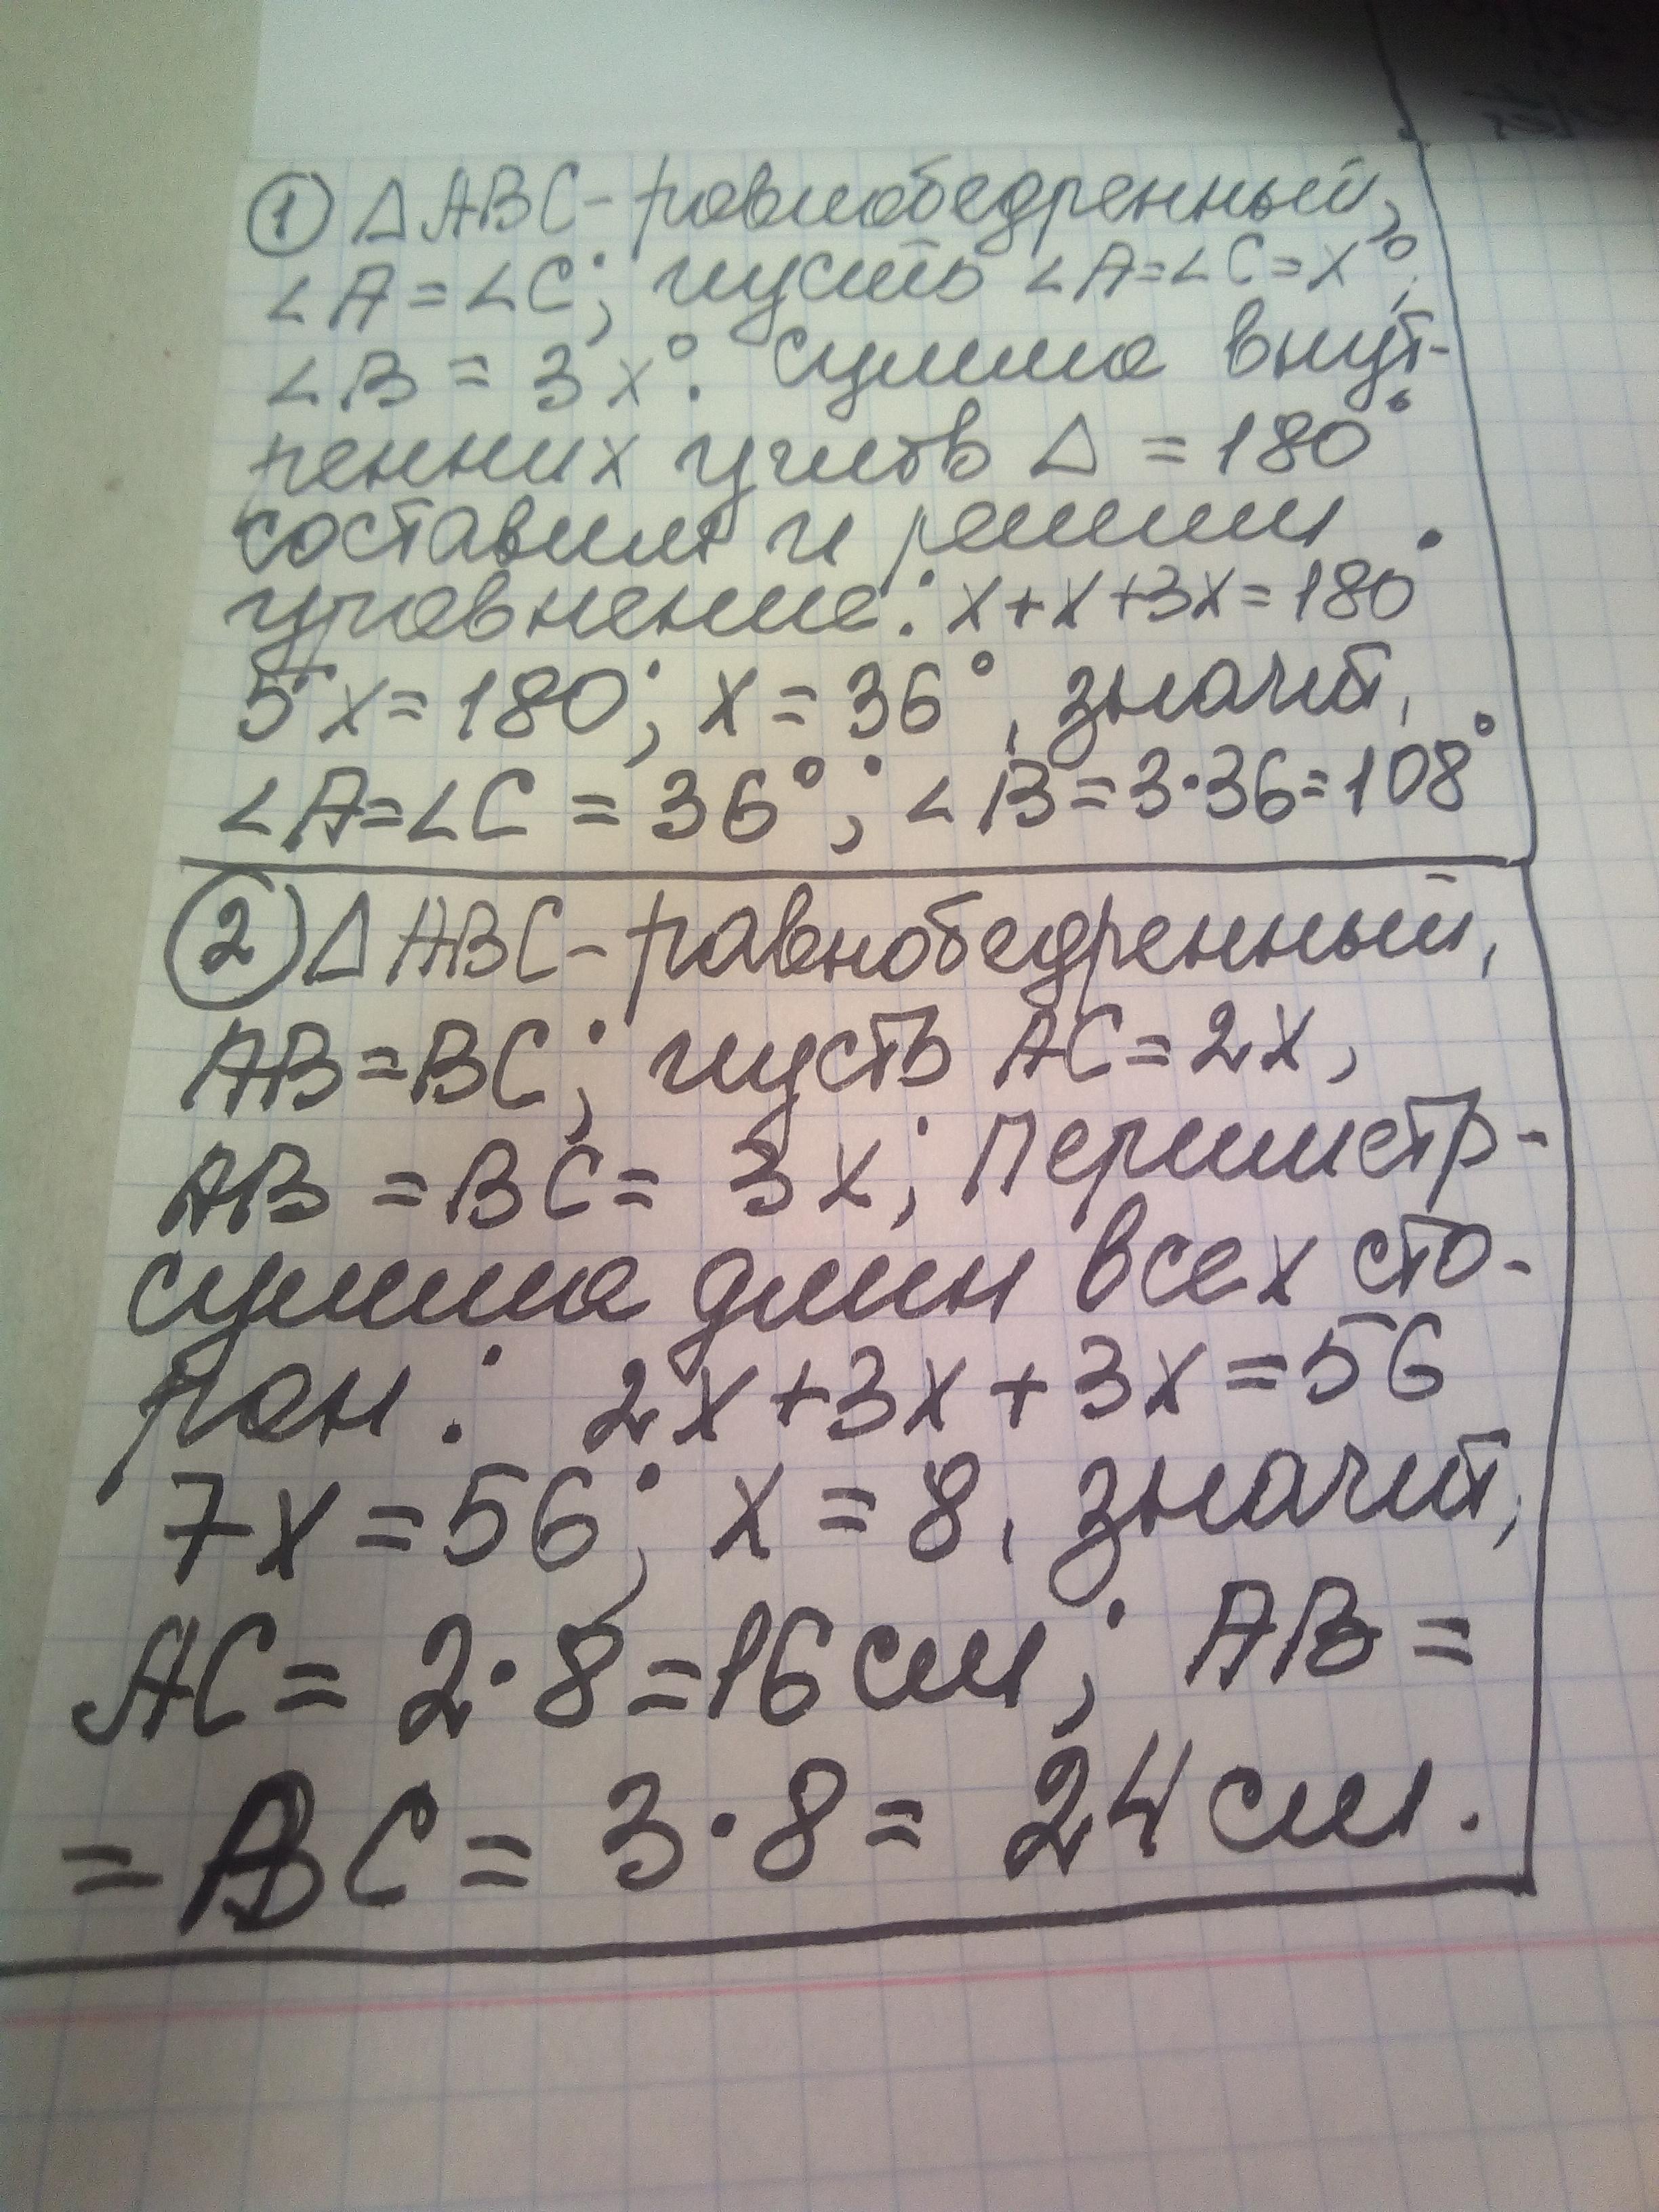 ① △ABC - равнобедренный,
∠A = ∠C; пусть ∠A=∠C=x°;
∠B = 3x°. Сумма внут-
ренних углов △ = 180°
составим и решим
уравнение: x+x+3x=180°
5x=180; x=36°, значит,
∠A=∠C = 36°; ∠B=3·36=108°
② △ABC - равнобедренный,
AB=BC; пусть AC=2x,
AB = BC = 3x; Периметр -
сумма длин всех сто-
рон: 2x+3x+3x=56
7x=56; x=8, значит,
AC= 2·8=16см; AB =
= BC = 3·8= 24см.